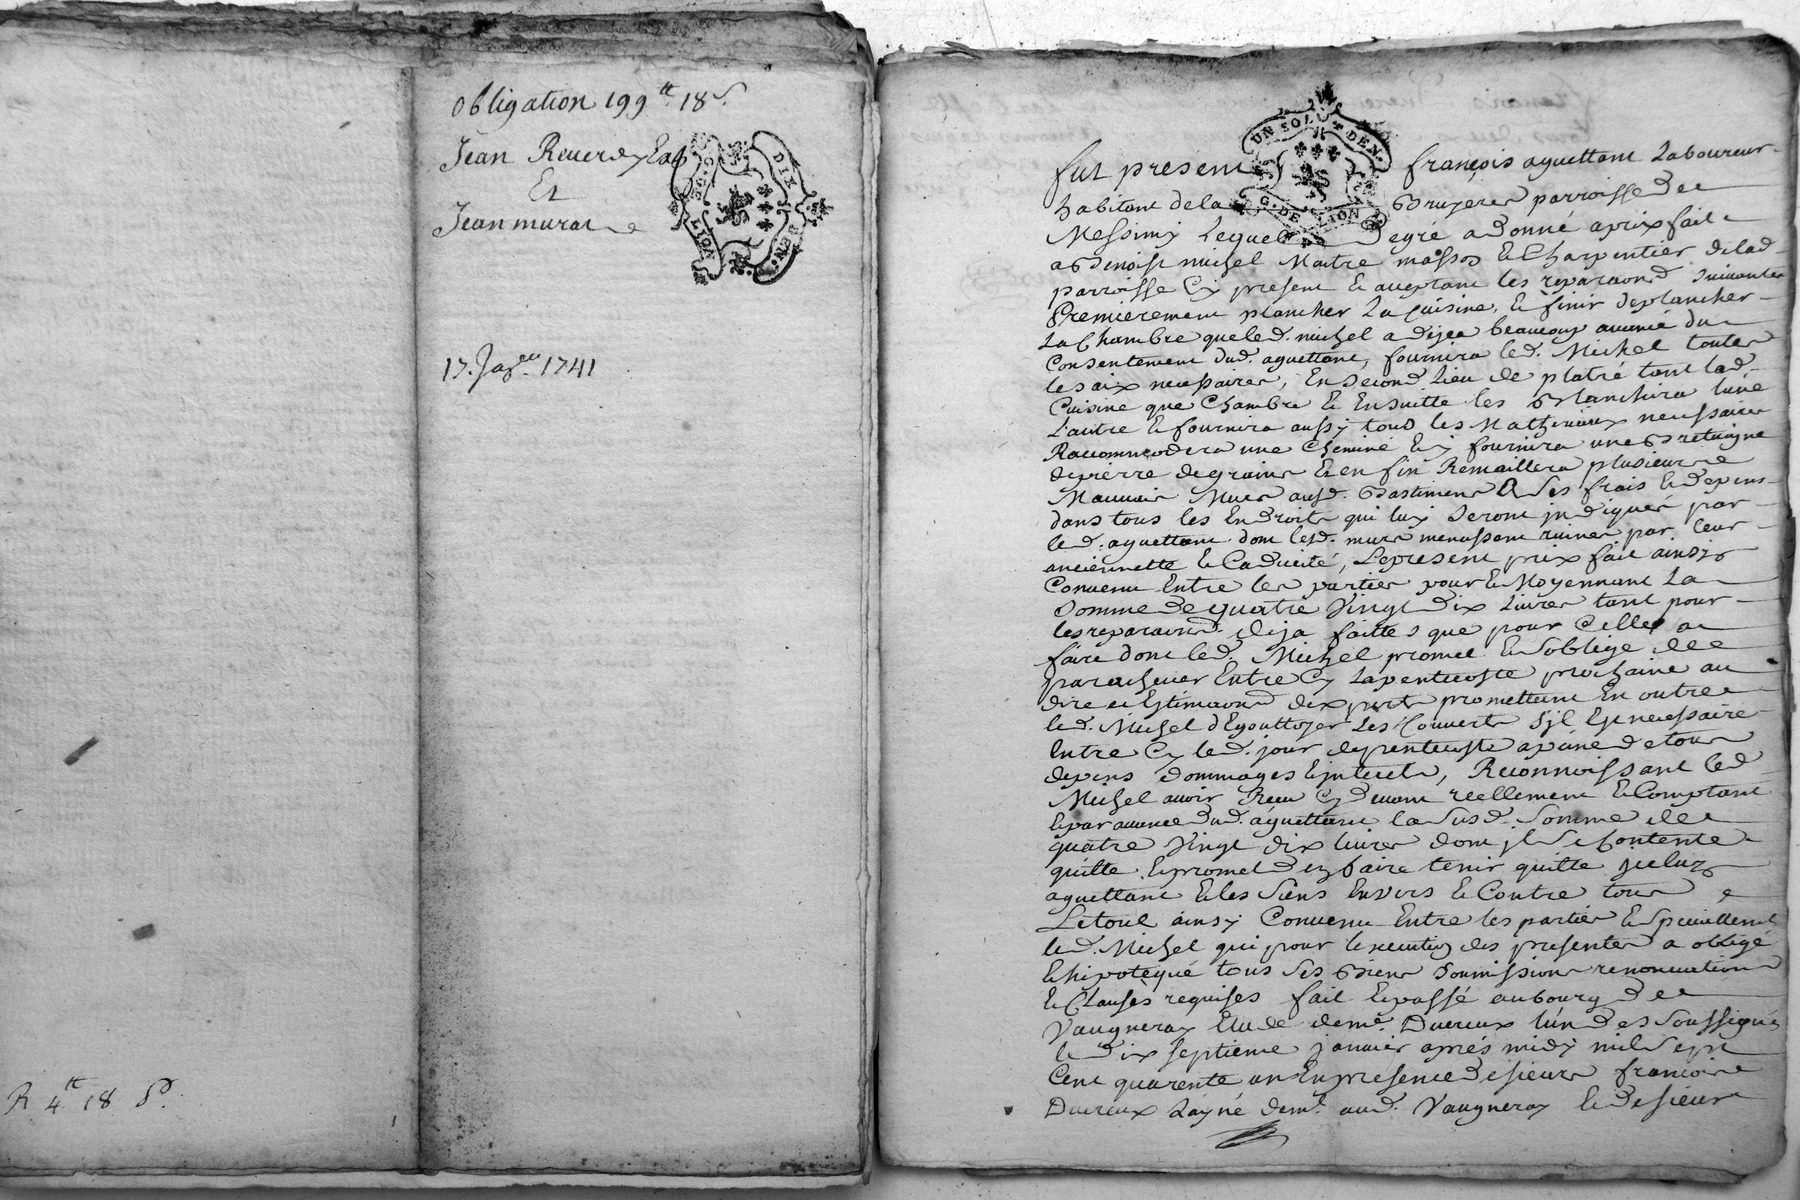 obligation 199 tt 18 s.
Jean Reverdy
Et
Jean murat
G. DE LION
DIX DEN.
17. Janv.er 1741
R 4 tt 18 s.
UN SOL 4 DEN.
G. DE LION
fut présent françois aguettant Laboureur
habitant de la Bruyere parroisse de
Messimy Lequel de gré a donné a prix fait
a Benoist michel Maitre masson & Charpentier de lad.
parroisse Cy present & acceptant les reparaons suivantes
Premierement plancher La Cuisine, & finir de plancher
La Chambre que led. michel a dejea beaucoup avancé du
Consentement dud. aguettant, fournira led. Michel toutes
les aix necessaires, En second Lieu de platré tant lad.
Cuisine que Chambre & Ensuitte les Blanchira lune
L'autre & fournira aussy tous les Mathereaux necessaires
Raccommodera une Cheminé & y fournira une Bretaigne
de pierre de grain & en fin Remaillera plusieurs
Mauvais Murs aud. Bastiment a ses frais & depens
dans tous les Endroits qui luy seront indiqués par
led. aguettant dont lesd. murs menassent ruine par leur
anciennetté & Caducité, Le present prix fait ainsy
Convenu Entre les parties pour & Moyennant La
somme de quatre Vingt dix Livres tant pour
les reparaons deja faittes que pour Celles a
faire dont led. Michel promet & s'oblige de
parachever Entre Cy La pentecoste prochaine au
dire et Estimaon dexperts promettant En outre
led. Michel d'Egouttoyer Les Couverts s'jl Est necessaire
Entre Cy led. jour de pentecoste a peine de tous
depens dommages & jnterets, Reconnoissant led.
Michel avoir Receu Cy devant réellement & Comptant
& par avance dud. aguettant la susd. somme de
quatre Vingt dix livres dont jl se Contente
quitte & promet den faire tenir quitte jceluy
aguettant & les siens Envers & Contre tous
Le tout ainsy Convenu Entre les parties & specialement
led. Michel qui pour l'execution des presentes a obligé
& hipotequé tous ses Biens soumissions renonciations
& Clauses requises fait & passé au bourg de
Vaugneray Etude de me. Duereux l'un des soussignés
le dix septieme janvier aprés midy mil sept
Cent quarente un En presence de sieurs françois
Duereux Layné dem.t aud. Vaugneray & de sieur